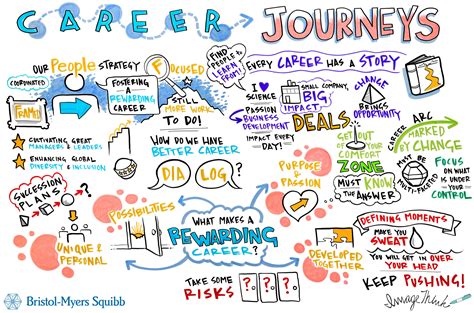 CAREER
JOURNEYS
OUR People STRATEGY
FOCUSED
COORDINATED
FOSTERING
A
REWARDING
CAREER
STILL
MORE WORK
TO DO!
CULTIVATING GREAT
MANAGERS & LEADERS
ENHANCING GLOBAL
DIVERSITY & INCLUSION
SUCCESSION
PLANS
UNIQUE &
PERSONAL
HOW DO WE HAVE
BETTER CAREER
DIALOG?
POSSIBILITIES
WHAT MAKES A
REWARDING
CAREER?
TAKE SOME
RISKS
? ? ?
FIND
PEOPLE TO
LEARN
FROM!
EVERY CAREER HAS A STORY
I
SCIENCE
PASSION
BUSINESS
DEVELOPMENT
SMALL COMPANY,
BIG
IMPACT
IMPACT EVERY
DAY!
DEALS
CHANGE
BRINGS
OPPORTUNITY
GET
OUT OF
YOUR
COMFORT
ZONE
MUST KNOW
THE ANSWER
CAREER ARC
MARKED
BY
CHANGE
MUST BE
MULTI-FACETED
FOCUS
ON WHAT
IS UNDER
YOUR
CONTROL
PURPOSE
&
PASSION
DEVELOPED
TOGETHER
DEFINING MOMENTS
MAKE YOU
SWEAT
YOU'LL GET IN OVER
YOUR HEAD
KEEP PUSHING!
Bristol-Myers Squibb
ImageThink